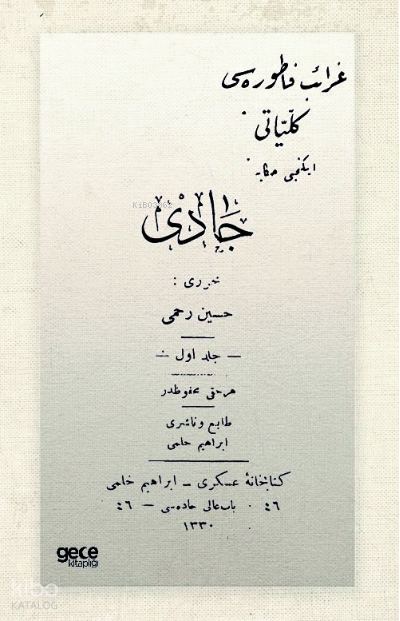 غرائب فاطورەسی
كلّیاتی
ایكنجی حكایە
جادی
KiBO862
محرری :
حسین رحمی
— جلد اول —
هر حقی محفوظدر
طابع و ناشری
ابراهیم حلمی
كتابخانۀ عسكری ـ ابراهیم حلمی
٤٦ · باب عالی جادەسی — ٤٦
١٣٣٠
gece
kitaplığı
kibo
KATALOG